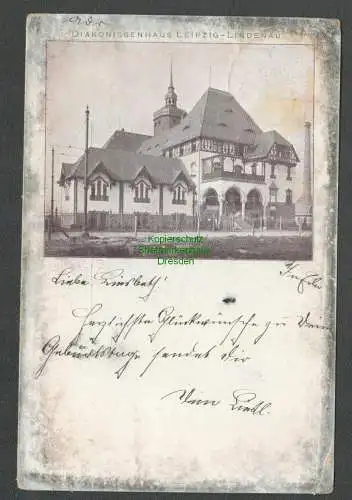 DIAKONISSENHAUS LEIPZIG-LINDENAU
Kopierschutz
Briefmarkenhaus
Dresden
Liebe Linsbeth!
Herzlichste Glückwünsche zu Dein
Geburtstage sendet dir